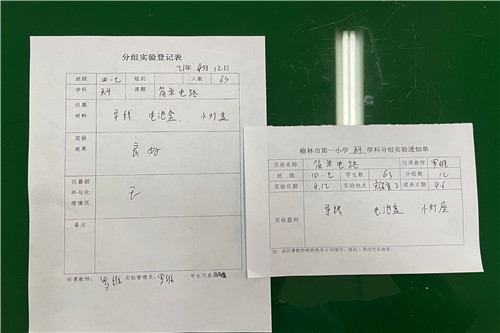 分组实验登记表
21年4月12日
班级 四·七 组别 人数 63
学科 科 课题 简单电路
仪器材料 导线 电池盒、小灯座
实验效果 良好
仪器损坏与处理情况 无
备注
任课教师: 罗维 实验管理员: 罗维 学生代表
榆林市第一小学 科 学科分组实验通知单
实验名称 简单电路 任课教师 罗维
班级 四·七 学生数 63 分组数 12
实验日期 4.12 实验地点 实验室2 填表日期 4.6
实验器材 导线 电池盒 小灯座